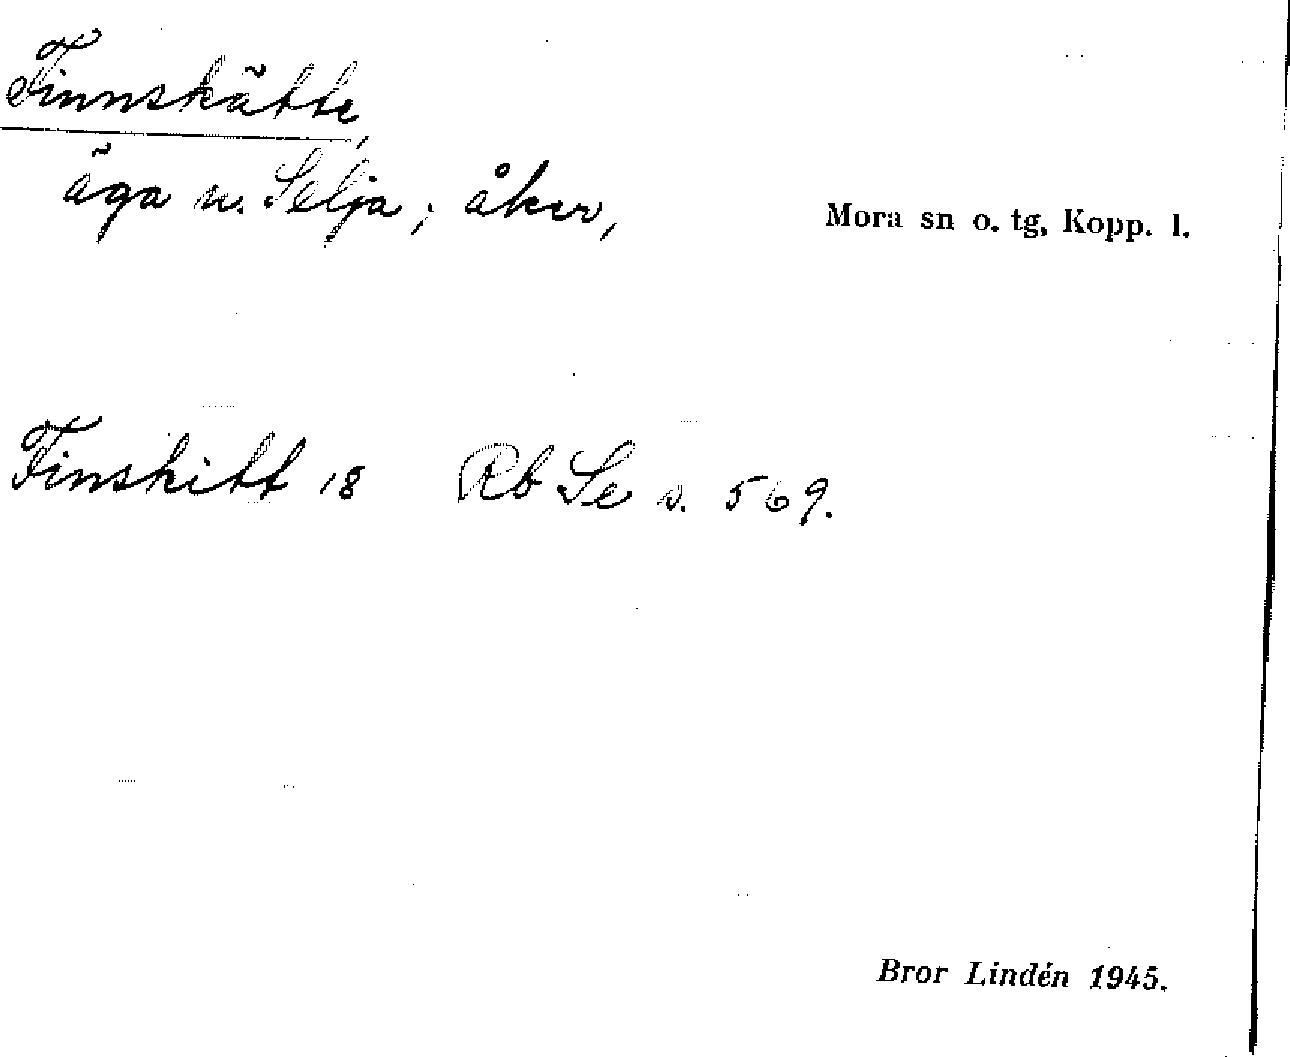 Finnskätte,
äga n. Selja; åker,
Mora sn o. tg, Kopp. l.
Finskitt 18 Rb Se s. 569.
Bror Lindén 1945.